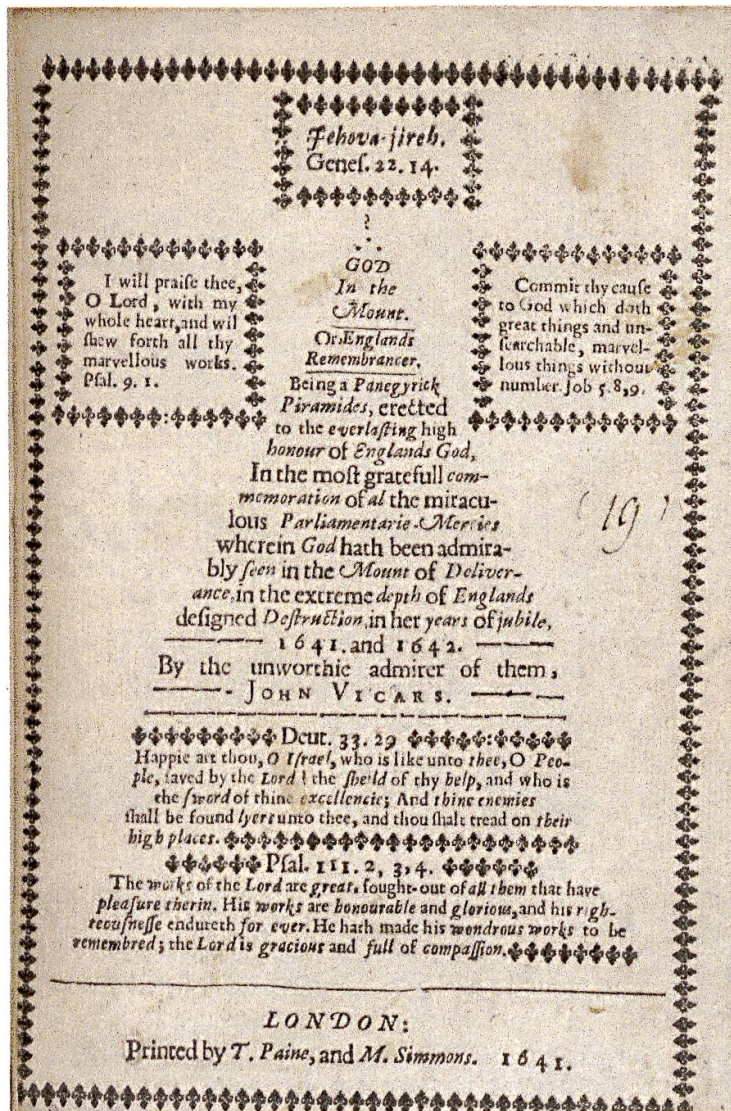 Jehova-jireh.
Geneſ. 22. 14.
I will praiſe thee,
O Lord, with my
whole heart, and wil
ſhew forth all thy
marvellous works.
Pſal. 9. 1.
GOD
In the
Mount.
Or, Englands
Remembrancer.
Being a Panegyrick
Piramides, erected
to the everlaſting high
honour of Englands God,
In the moſt gratefull com-
memoration of al the miracu-
lous Parliamentarie-Mercies
wherein God hath been admira-
bly ſeen in the Mount of Deliver-
ance, in the extreme depth of Englands
deſigned Deſtruction, in her years of jubile,
1641. and 1642.
By the unworthie admirer of them,
JOHN VICARS.
Commit thy cauſe
to God which doth
great things and un-
ſearchable, marvel-
lous things without
number. Job 5. 8, 9.
(19)
Deut. 33. 29
Happie art thou, O Iſrael, who is like unto thee, O Peo-
ple, ſaved by the Lord! the ſheild of thy help, and who is
the ſword of thine excellencie; And thine enemies
ſhall be found lyers unto thee, and thou ſhalt tread on their
high places.
Pſal. 111. 2, 3, 4.
The works of the Lord are great, ſought-out of all them that have
pleaſure therin. His works are honourable and glorious, and his righ-
teouſneſſe endureth for ever. He hath made his wondrous works to be
remembred; the Lord is gracious and full of compaſſion.
LONDON:
Printed by T. Paine, and M. Simmons. 1641.